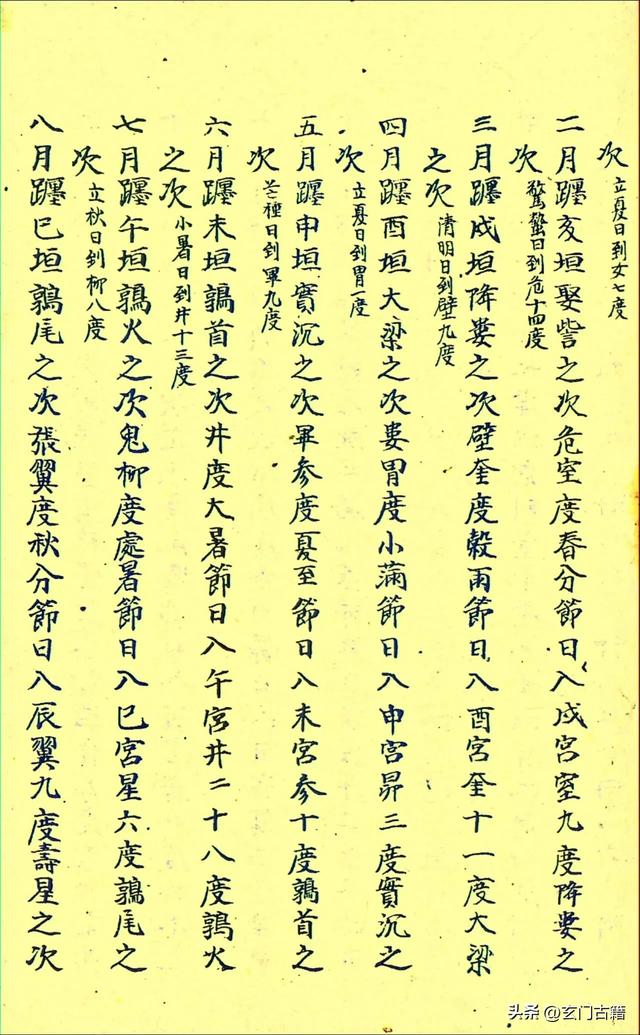 次 立夏日到女七度
二月躔亥垣娶訾之次危室度春分節日入戌宮室九度降婁之
次 驚蟄日到危十四度
三月躔戌垣降婁之次壁奎度穀雨節日入酉宮奎十一度大梁
之次 清明日到壁九度
四月躔酉垣大梁之次婁胃度小滿節日入申宮昴三度實沉之
次 立夏日到胃一度
五月躔申垣實沉之次畢參度夏至節日入未宮參十度鶉首之
次 芒種日到畢九度
六月躔未垣鶉首之次井度大暑節日入午宮井二十八度鶉火
之次 小暑日到井十三度
七月躔午垣鶉火之次鬼柳度處暑節日入巳宮星六度鶉尾之
次 立秋日到柳八度
八月躔巳垣鶉尾之次張翼度秋分節日入辰翼九度壽星之次
头条 @玄门古籍